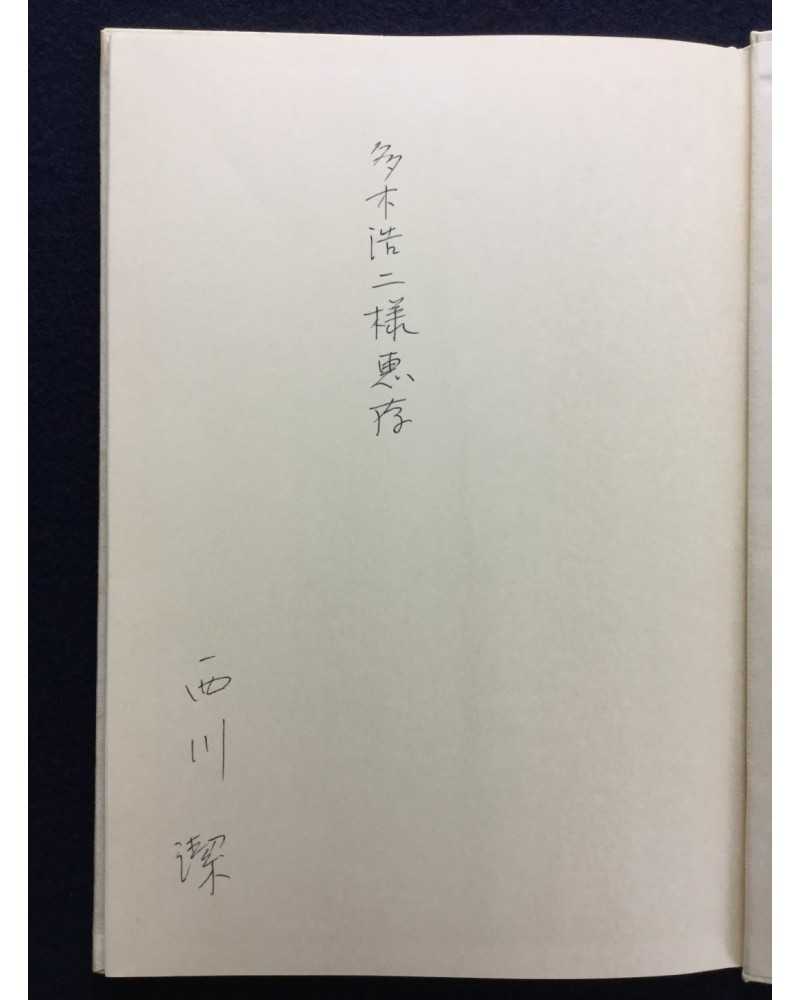 多木浩二様恵存
西川 潔